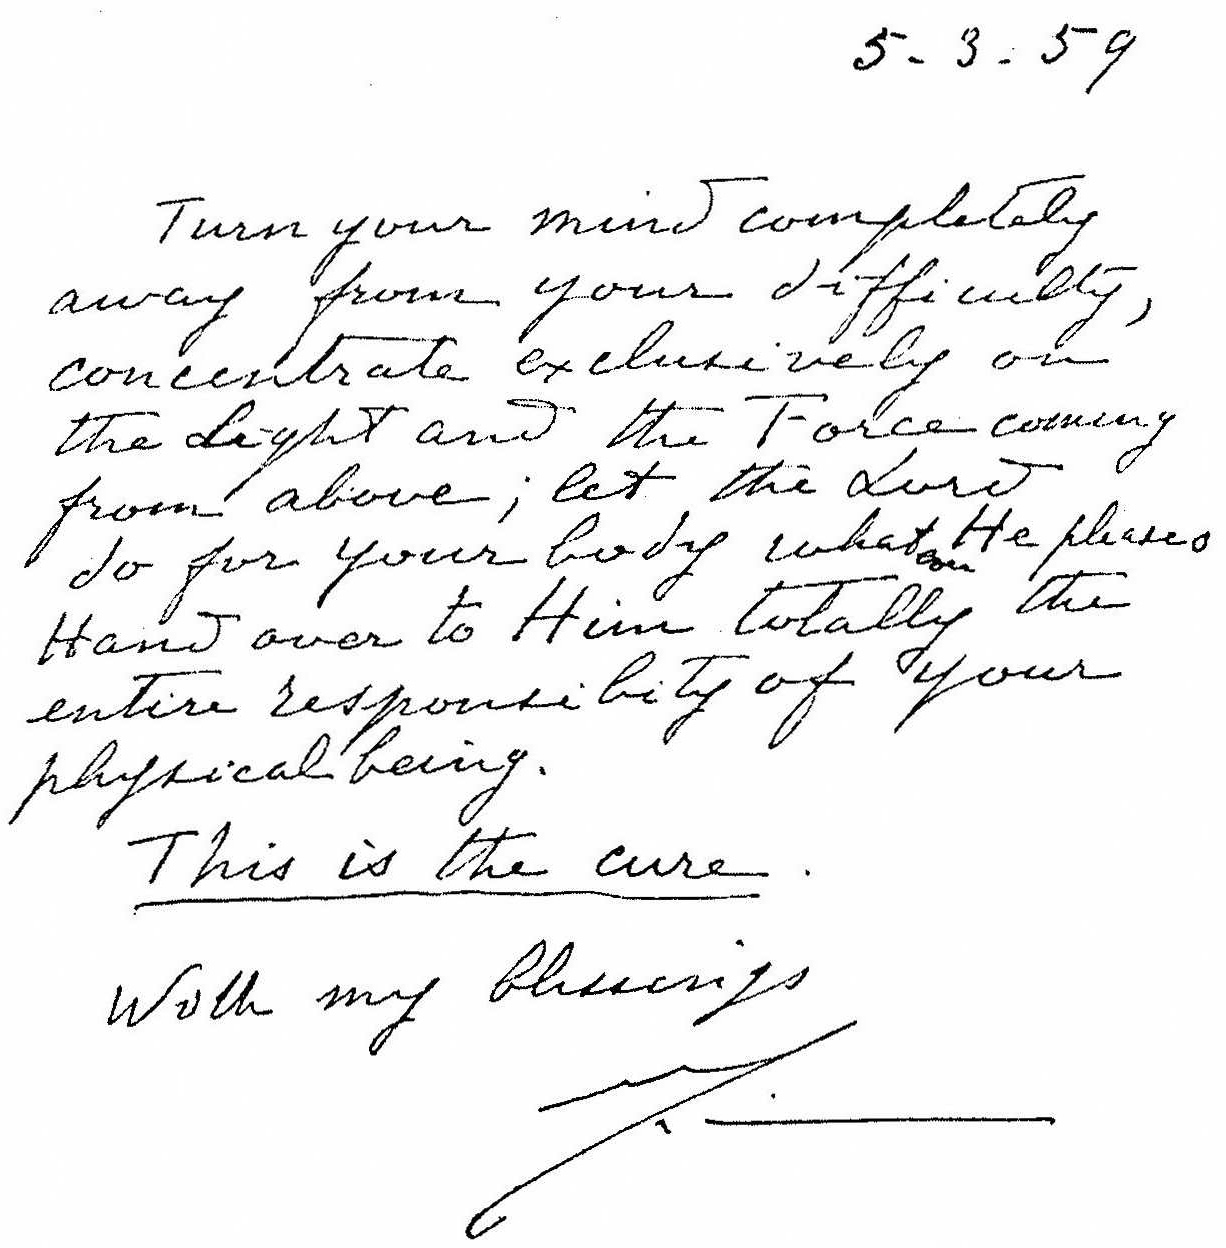 5-3-59
Turn your mind completely
away from your difficulty,
concentrate exclusively on
the Light and the Force coming
from above; let the Lord
do for your body whatever He pleases
Hand over to Him totally the
entire responsibity of your
physical being.
This is the cure.
With my blessings